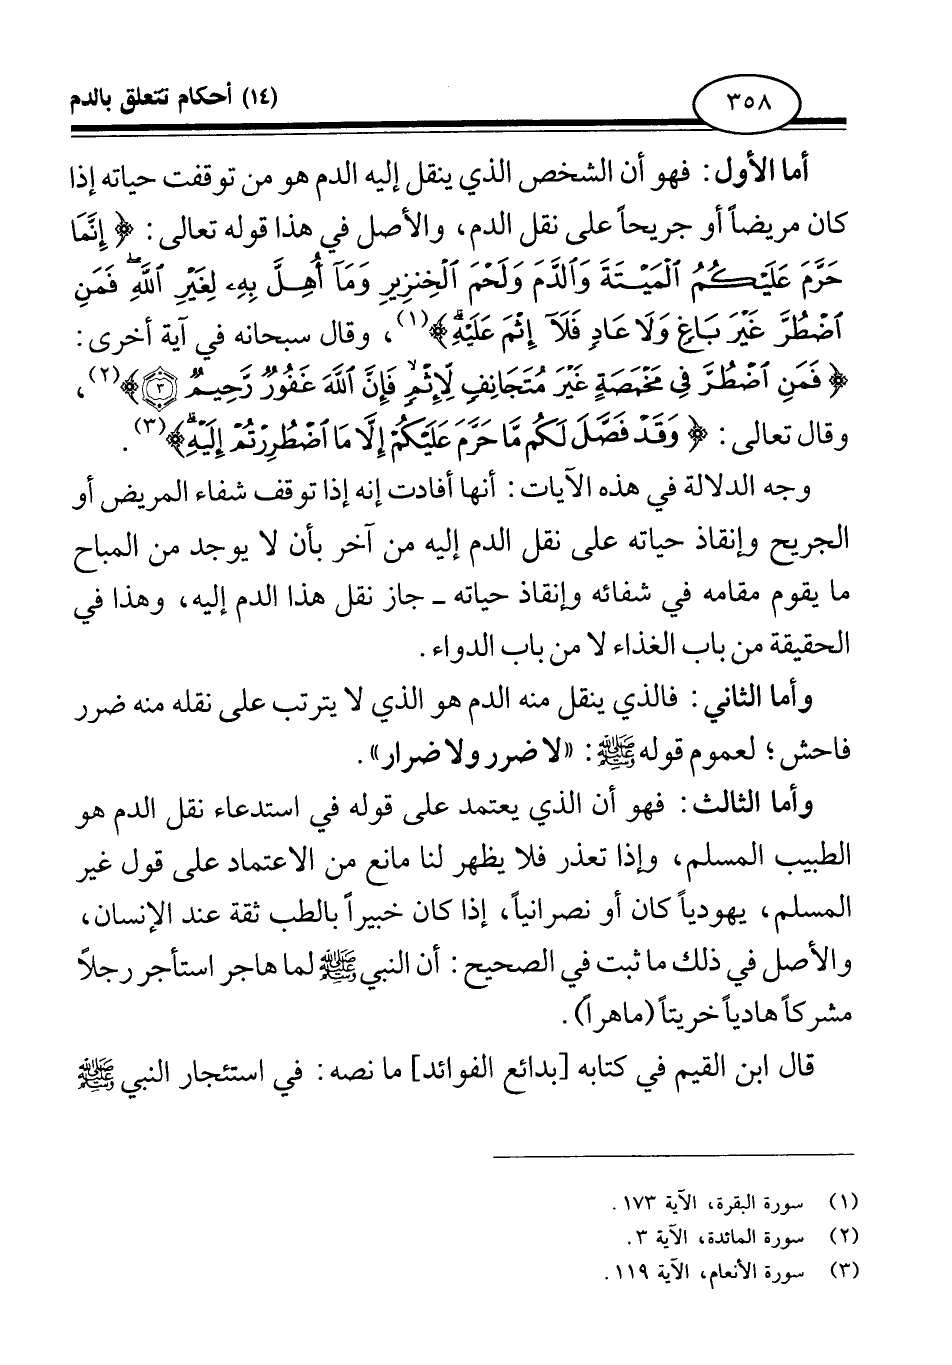 (١٤) أحكام تتعلق بالدم
٣٥٨
أما الأول: فهو أن الشخص الذي ينقل إليه الدم هو من توقفت حياته إذا
كان مريضاً أو جريحاً على نقل الدم، والأصل في هذا قوله تعالى: ﴿ إِنَّمَا
حَرَّمَ عَلَيْكُمُ ٱلْمَيْتَةَ وَٱلدَّمَ وَلَحْمَ ٱلْخِنزِيرِ وَمَآ أُهِلَّ بِهِۦ لِغَيْرِ ٱللَّهِۖ فَمَنِ
ٱضْطُرَّ غَيْرَ بَاغٍ وَلَا عَادٍ فَلَآ إِثْمَ عَلَيْهِۚ﴾(١)، وقال سبحانه في آية أخرى:
﴿ فَمَنِ ٱضْطُرَّ فِى مَخْمَصَةٍ غَيْرَ مُتَجَانِفٍ لِّإِثْمٍۙ فَإِنَّ ٱللَّهَ غَفُورٌ رَّحِيمٌ ٣﴾(٢)،
وقال تعالى: ﴿ وَقَدْ فَصَّلَ لَكُم مَّا حَرَّمَ عَلَيْكُمْ إِلَّا مَا ٱضْطُرِرْتُمْ إِلَيْهِۗ﴾(٣).
وجه الدلالة في هذه الآيات: أنها أفادت إنه إذا توقف شفاء المريض أو
الجريح وإنقاذ حياته على نقل الدم إليه من آخر بأن لا يوجد من المباح
ما يقوم مقامه في شفائه وإنقاذ حياته ـ جاز نقل هذا الدم إليه، وهذا في
الحقيقة من باب الغذاء لا من باب الدواء.
وأما الثاني: فالذي ينقل منه الدم هو الذي لا يترتب على نقله منه ضرر
فاحش؛ لعموم قوله ﷺ: «لا ضرر ولا ضرار».
وأما الثالث: فهو أن الذي يعتمد على قوله في استدعاء نقل الدم هو
الطبيب المسلم، وإذا تعذر فلا يظهر لنا مانع من الاعتماد على قول غير
المسلم، يهودياً كان أو نصرانياً، إذا كان خبيراً بالطب ثقة عند الإنسان،
والأصل في ذلك ما ثبت في الصحيح: أن النبي ﷺ لما هاجر استأجر رجلاً
مشركاً هادياً خريتاً (ماهراً).
قال ابن القيم في كتابه [بدائع الفوائد] ما نصه: في استئجار النبي ﷺ
(١) سورة البقرة، الآية ١٧٣.
(٢) سورة المائدة، الآية ٣.
(٣) سورة الأنعام، الآية ١١٩.